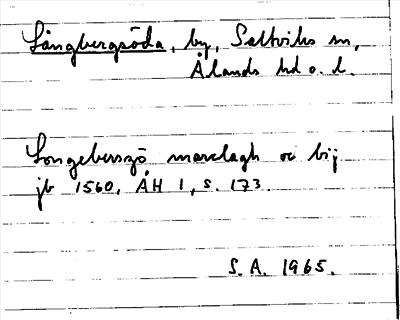 Långbergsöda, by, Saltviks sn,
Ålands hd o. l.
Longebersziö marclagh oc bij
jb 1560, ÅH 1, s. 173.
S. A. 1965.